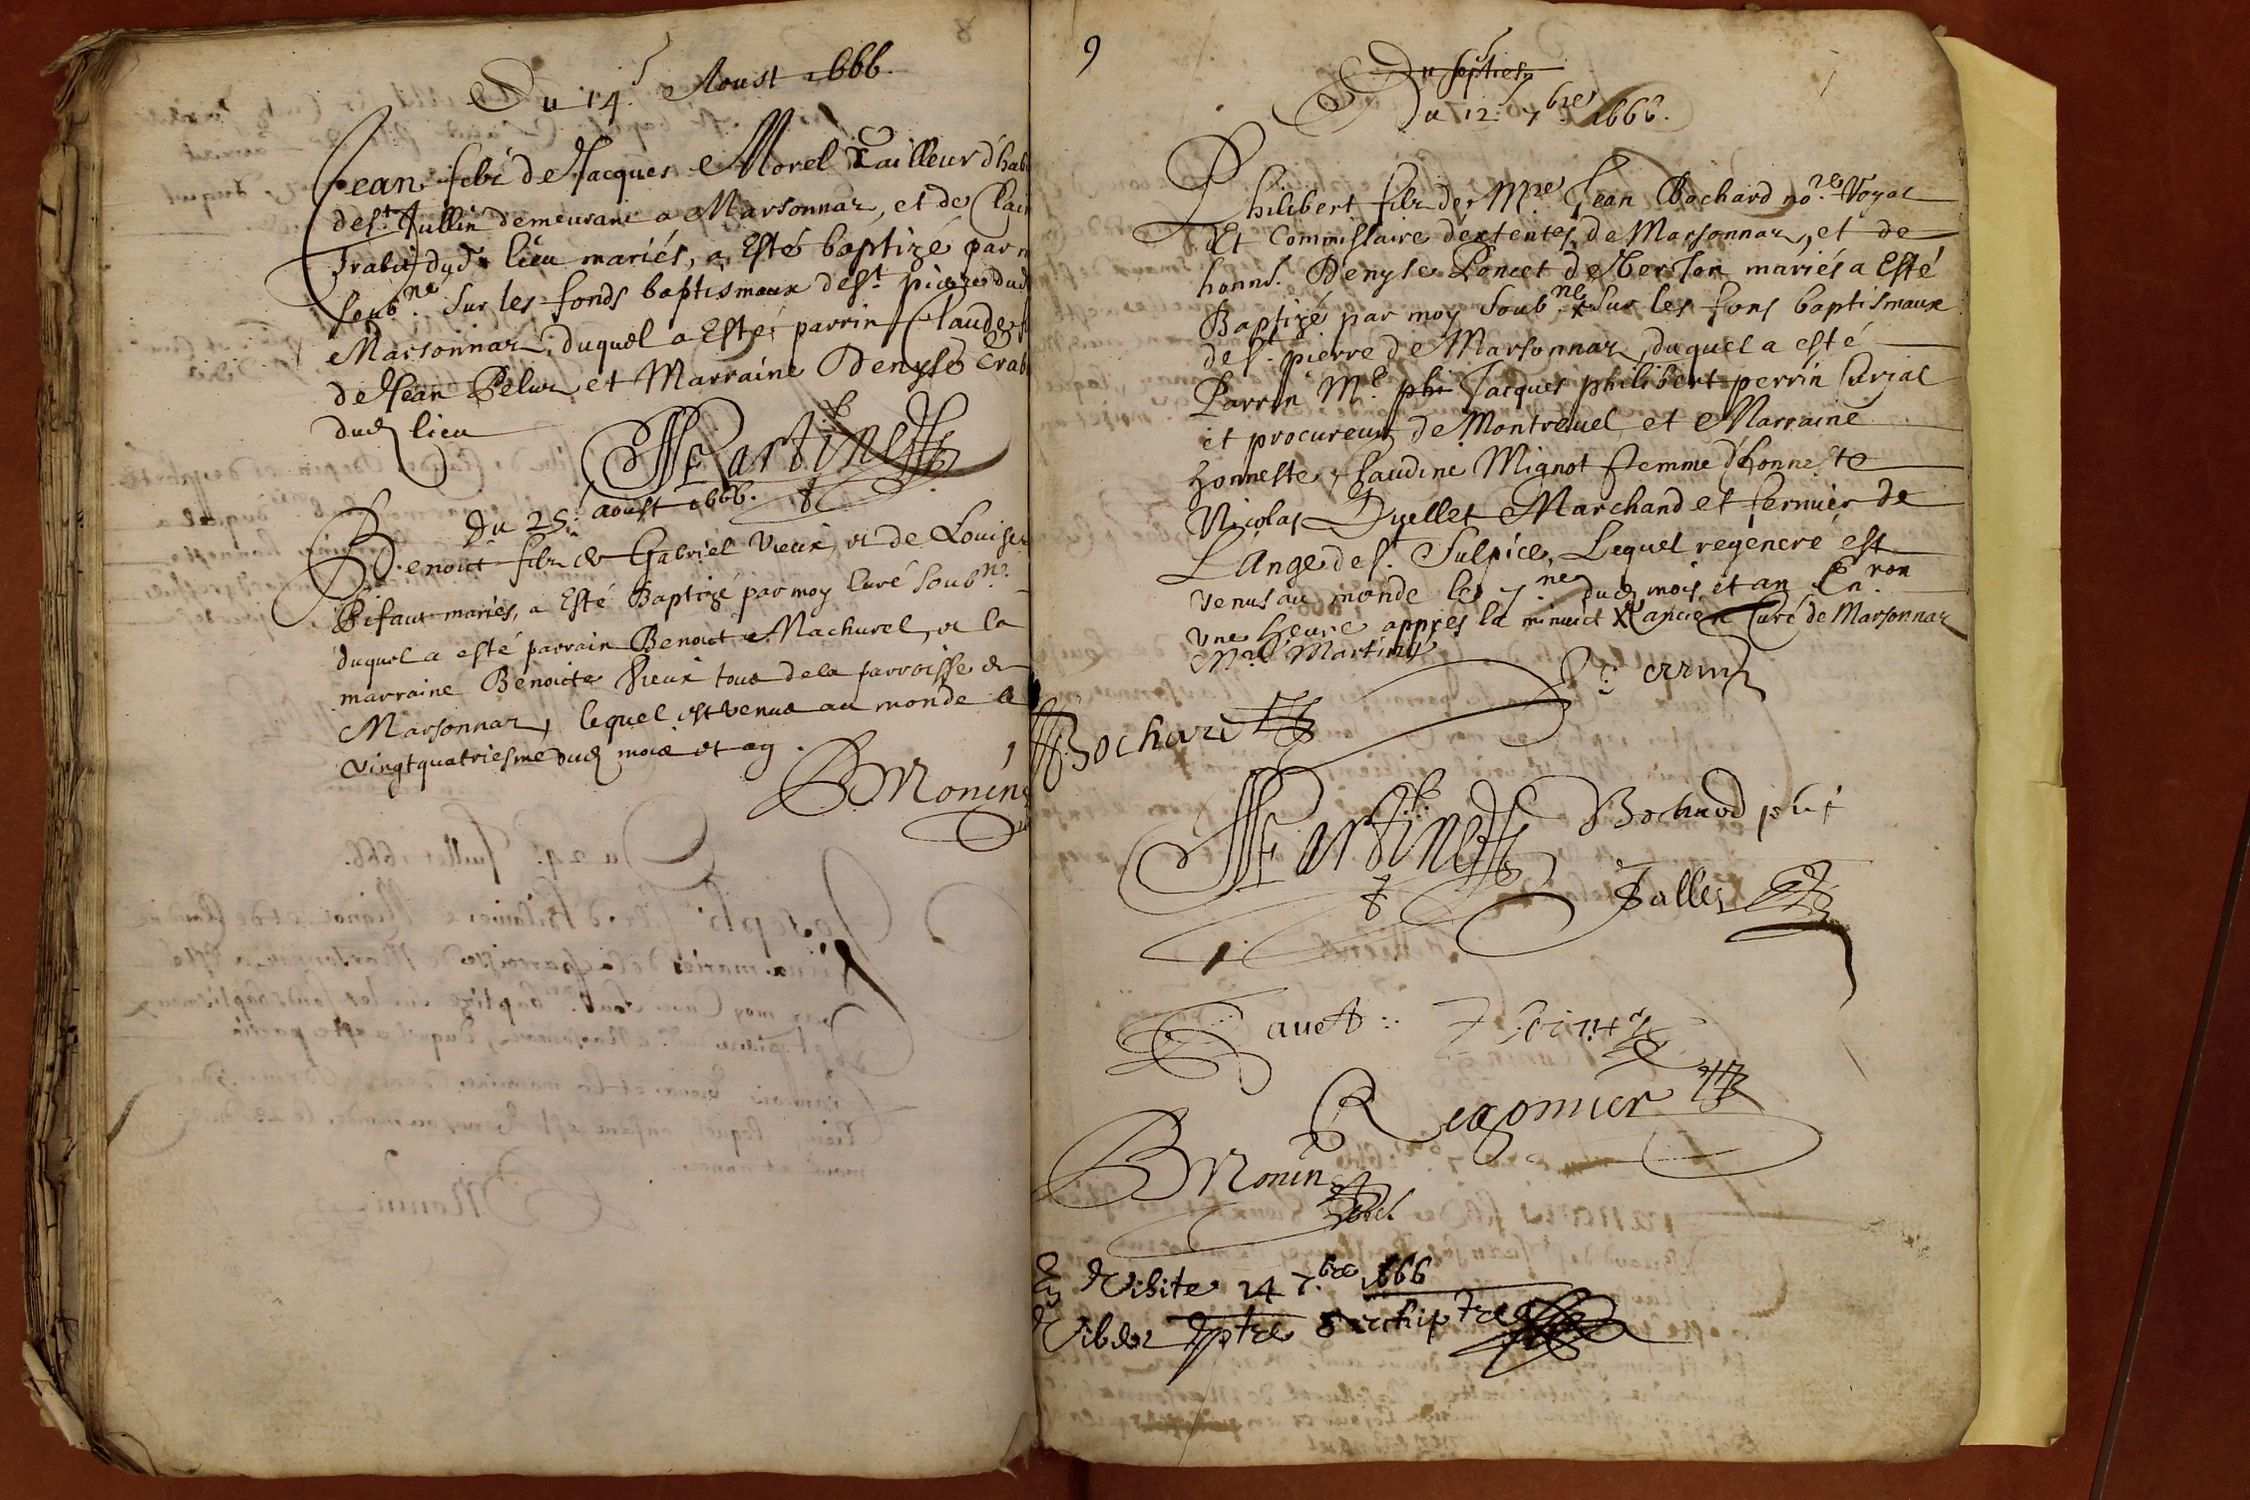 Du 14. Aoust 1666.
Jean filz de Jacques Morel Tailleur d'hab
de St. Jullin demeurant a Marsonnaz, et de Clau
Trabit dud. lieu mariés, a Esté baptizé par
soub.ne sur les fonds baptismaux de St. pierre dud
Marsonnaz, duquel a Esté parrin Claude
de Jean Peluz et Marraine Denyse Trab
dud lieu
Martine
Du 25. aoust 1666.
Benoict filz de Gabriel Vieux, et de Louise
Pifaut mariés, a Esté Baptizé par moy Curé soub.ne
duquel a esté parrain Benoict Machurel, et la
marraine Benoicte Vieux tous de la parroisse de
Marsonnaz, lequel est venus au monde le
vingtquatriesme dud mois et an.
B Monin
9
Du septies
Du 12. 7.bre 1666.
Philibert filz de Mre Jean Bochard no.re Royal
Et Commissaire d'extentes de Marsonnaz, et de
honns. Denyse Poncet de Verson mariés a Esté
Baptizé par moy soub.ne sur les fons baptismaux
de St. pierre de Marsonnaz, duquel a esté
Parrin Me. phi Jacques philibert perrin Curial
et procureur de Montrevel et Marraine
honneste Claudine Mignot femme d'honneste
Nicolas Duellet Marchand et fermier de
L'Ange de St. Sulpice, Lequel regeneré est
venus au monde le 7.me dud mois et an En.ron
vne heure appres la minuict X l'ancien Curé de Marsonnaz
Mre Martine
Perrin
Bochard
Martine
Bochard pbr
Salles
Cavet
Regomier
B Monin
En Visite 24 7.bre 1666
Archiptre